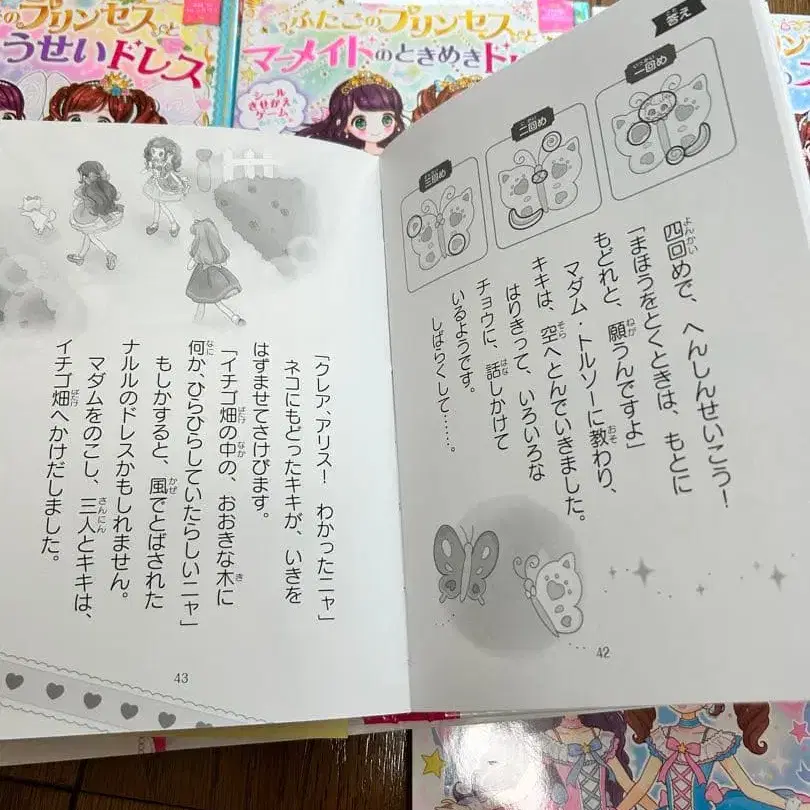 のプリンセスと
うせいドレス
ふたごのプリンセスと
マーメイドのときめきド
シール
きせかえ
ゲーム
答え
一回め
二回め
三回め
四回めで、へんしんせいこう!
「まほうをとくときは、もとに
もどれと、願うんですよ」
マダム・トルソーに教わり、
キキは、空へとんでいきました。
はりきって、いろいろな
チョウに、話しかけて
いるようです。
しばらくして……。
42
「クレア、アリス! わかったニャ」
ネコにもどったキキが、いきを
はずませてさけびます。
「イチゴ畑の中の、おおきな木に
何か、ひらひらしていたらしいニャ」
もしかすると、風でとばされた
ナルルのドレスかもしれません。
マダムをのこし、三人とキキは、
イチゴ畑へかけだしました。
43